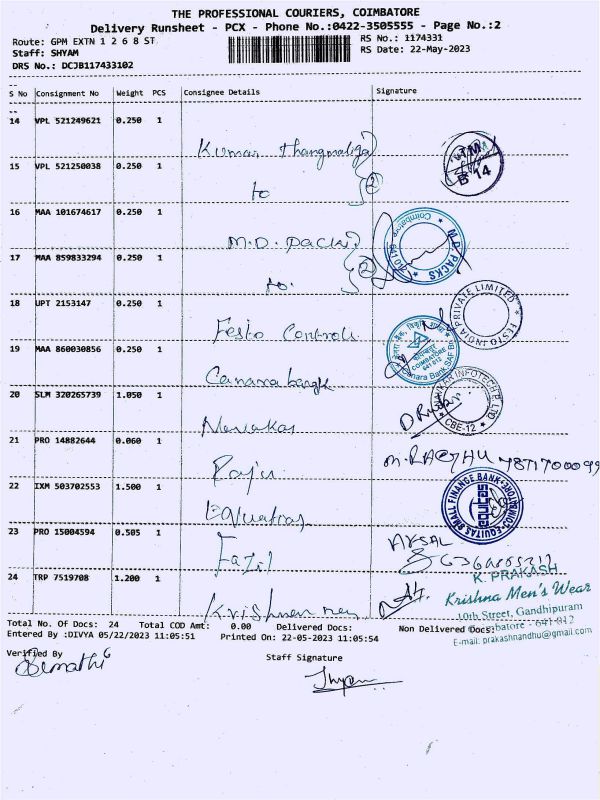 THE PROFESSIONAL COURIERS, COIMBATORE
Delivery Runsheet - PCX - Phone No.:0422-3505555 - Page No.:2
Route: GPM EXTN 1 2 6 8 ST
RS No.: 1174331
Staff: SHYAM
RS Date: 22-May-2023
DRS No.: DCJB117433102
S No Consignment No Weight PCS Consignee Details Signature
14 VPL 521249621 0.250 1
Kumar thangmaliga
VTM
B 14
15 VPL 521250038 0.250 1
to
2
16 MAA 101674617 0.250 1
M.D. Packs
Coimbatore
641 012
M.D. PACKS
17 MAA 859833294 0.250 1
to
2
18 UPT 2153147 0.250 1
Festo Controls
FESTO INDIA PRIVATE LIMITED
19 MAA 860030856 0.250 1
Canara bangk
COIMBATORE
641 012
Canara Bank
20 SLM 320265739 1.050 1
INFOTECH P. LTD
CBE-12
21 PRO 14882644 0.060 1
Raju
M. RAGHU 9871700099
22 IXM 503702553 1.500 1
EQUITAS SMALL FINANCE BANK
equitas
23 PRO 15004594 0.505 1
Fazil
AYSAL
24 TRP 7519708 1.200 1
Krishna men
K. PRAKASH
Krishna Men's Wear
10th Street, Gandhipuram
Coimbatore - 641 012
E-mail: prakashnandhu@gmail.com
Total No. Of Docs: 24 Total COD Amt: 0.00 Delivered Docs: Non Delivered Docs:
Entered By :DIVYA 05/22/2023 11:05:51 Printed On: 22-05-2023 11:05:54
Verified By
Staff Signature
Shyam